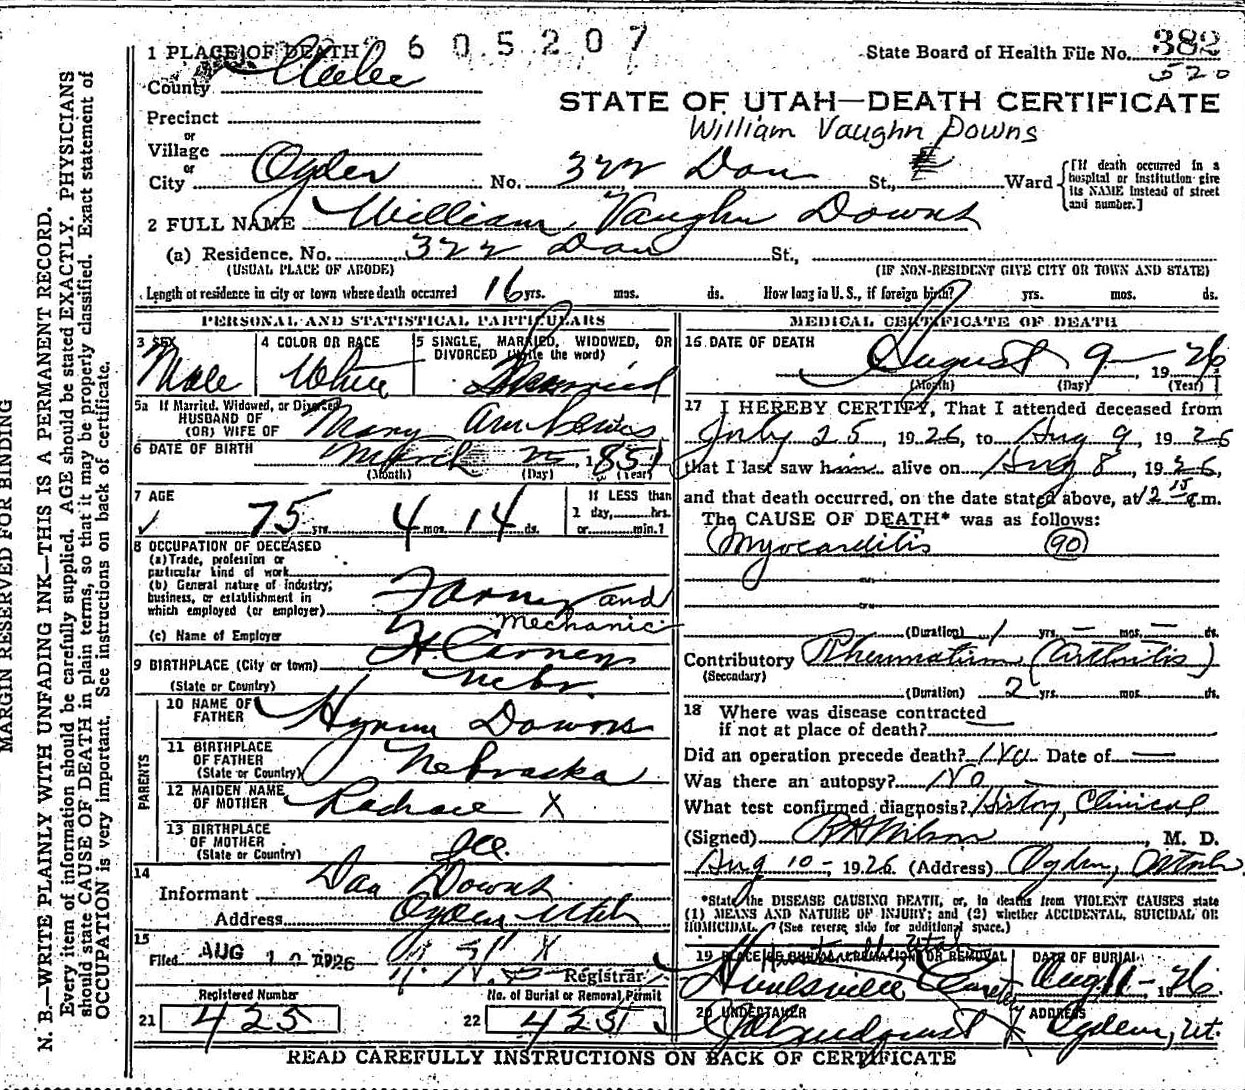 MARGIN RESERVED FOR BINDING
N. B.—WRITE PLAINLY WITH UNFADING INK—THIS IS A PERMANENT RECORD.
Every item of information should be carefully supplied. AGE should be stated EXACTLY. PHYSICIANS
should state CAUSE OF DEATH in plain terms, so that it may be properly classified. Exact statement of
OCCUPATION is very important. See instructions on back of certificate.
1 PLACE OF DEATH 605207
State Board of Health File No. 382
520
County
STATE OF UTAH—DEATH CERTIFICATE
Precinct
William Vaughn Downs
or
Village
or
City Ogden No. 322 Dan St., Ward
[If death occurred in a hospital or institution give its NAME instead of street and number.]
2 FULL NAME William Vaughn Downs
(a) Residence. No. 322 Dan St.,
(USUAL PLACE OF ABODE) (IF NON-RESIDENT GIVE CITY OR TOWN AND STATE)
Length of residence in city or town where death occurred 16 yrs. mos. ds. How long in U.S., if foreign birth? yrs. mos. ds.
PERSONAL AND STATISTICAL PARTICULARS
3 SEX
Male
4 COLOR OR RACE
White
5 SINGLE, MARRIED, WIDOWED, OR
DIVORCED (write the word)
Married
5a If Married, Widowed, or Divorced
HUSBAND OF
(OR) WIFE OF Mary Ann Lewis
6 DATE OF BIRTH March 25, 1851
(Month) (Day) (Year)
7 AGE
75 yrs. 4 mos. 14 ds.
If LESS than
1 day, hrs.
or min.?
8 OCCUPATION OF DECEASED
(a) Trade, profession or
particular kind of work
(b) General nature of industry,
business, or establishment in
which employed (or employer) and
Mechanic
(c) Name of Employer
9 BIRTHPLACE (City or town)
(State or Country) Nebr.
PARENTS
10 NAME OF
FATHER Hyrum Downs
11 BIRTHPLACE
OF FATHER
(State or Country) Nebraska
12 MAIDEN NAME
OF MOTHER X
13 BIRTHPLACE
OF MOTHER
(State or Country) Ill.
14
Informant Dan Downs
Address Ogden Utah
15
Filed AUG 10 1926
Registrar
Registered Number
21 425
No. of Burial or Removal Permit
22 425
MEDICAL CERTIFICATE OF DEATH
16 DATE OF DEATH
August 9, 1926
(Month) (Day) (Year)
17 I HEREBY CERTIFY, That I attended deceased from
July 25, 1926, to Aug 9, 1926
that I last saw him alive on Aug 8, 1926,
and that death occurred, on the date stated above, at 12 15 a.m.
The CAUSE OF DEATH* was as follows:
Myocarditis 90
(Duration) 1 yrs. — mos. — ds.
Contributory Rheumatism (Arthritis)
(Secondary)
(Duration) 2 yrs. mos. ds.
18 Where was disease contracted
if not at place of death?
Did an operation precede death? No Date of
Was there an autopsy? No
What test confirmed diagnosis? History, Clinical
(Signed) M. D.
Aug 10 - 1926 (Address) Ogden, Utah
*State the DISEASE CAUSING DEATH, or, in deaths from VIOLENT CAUSES state
(1) MEANS AND NATURE OF INJURY; and (2) whether ACCIDENTAL, SUICIDAL OR
HOMICIDAL. (See reverse side for additional space.)
19 PLACE OF BURIAL, CREMATION OR REMOVAL
Huntsville, Utah
Huntsville
DATE OF BURIAL
Aug 11 - 1926.
20 UNDERTAKER
ADDRESS
Ogden, Ut.
READ CAREFULLY INSTRUCTIONS ON BACK OF CERTIFICATE